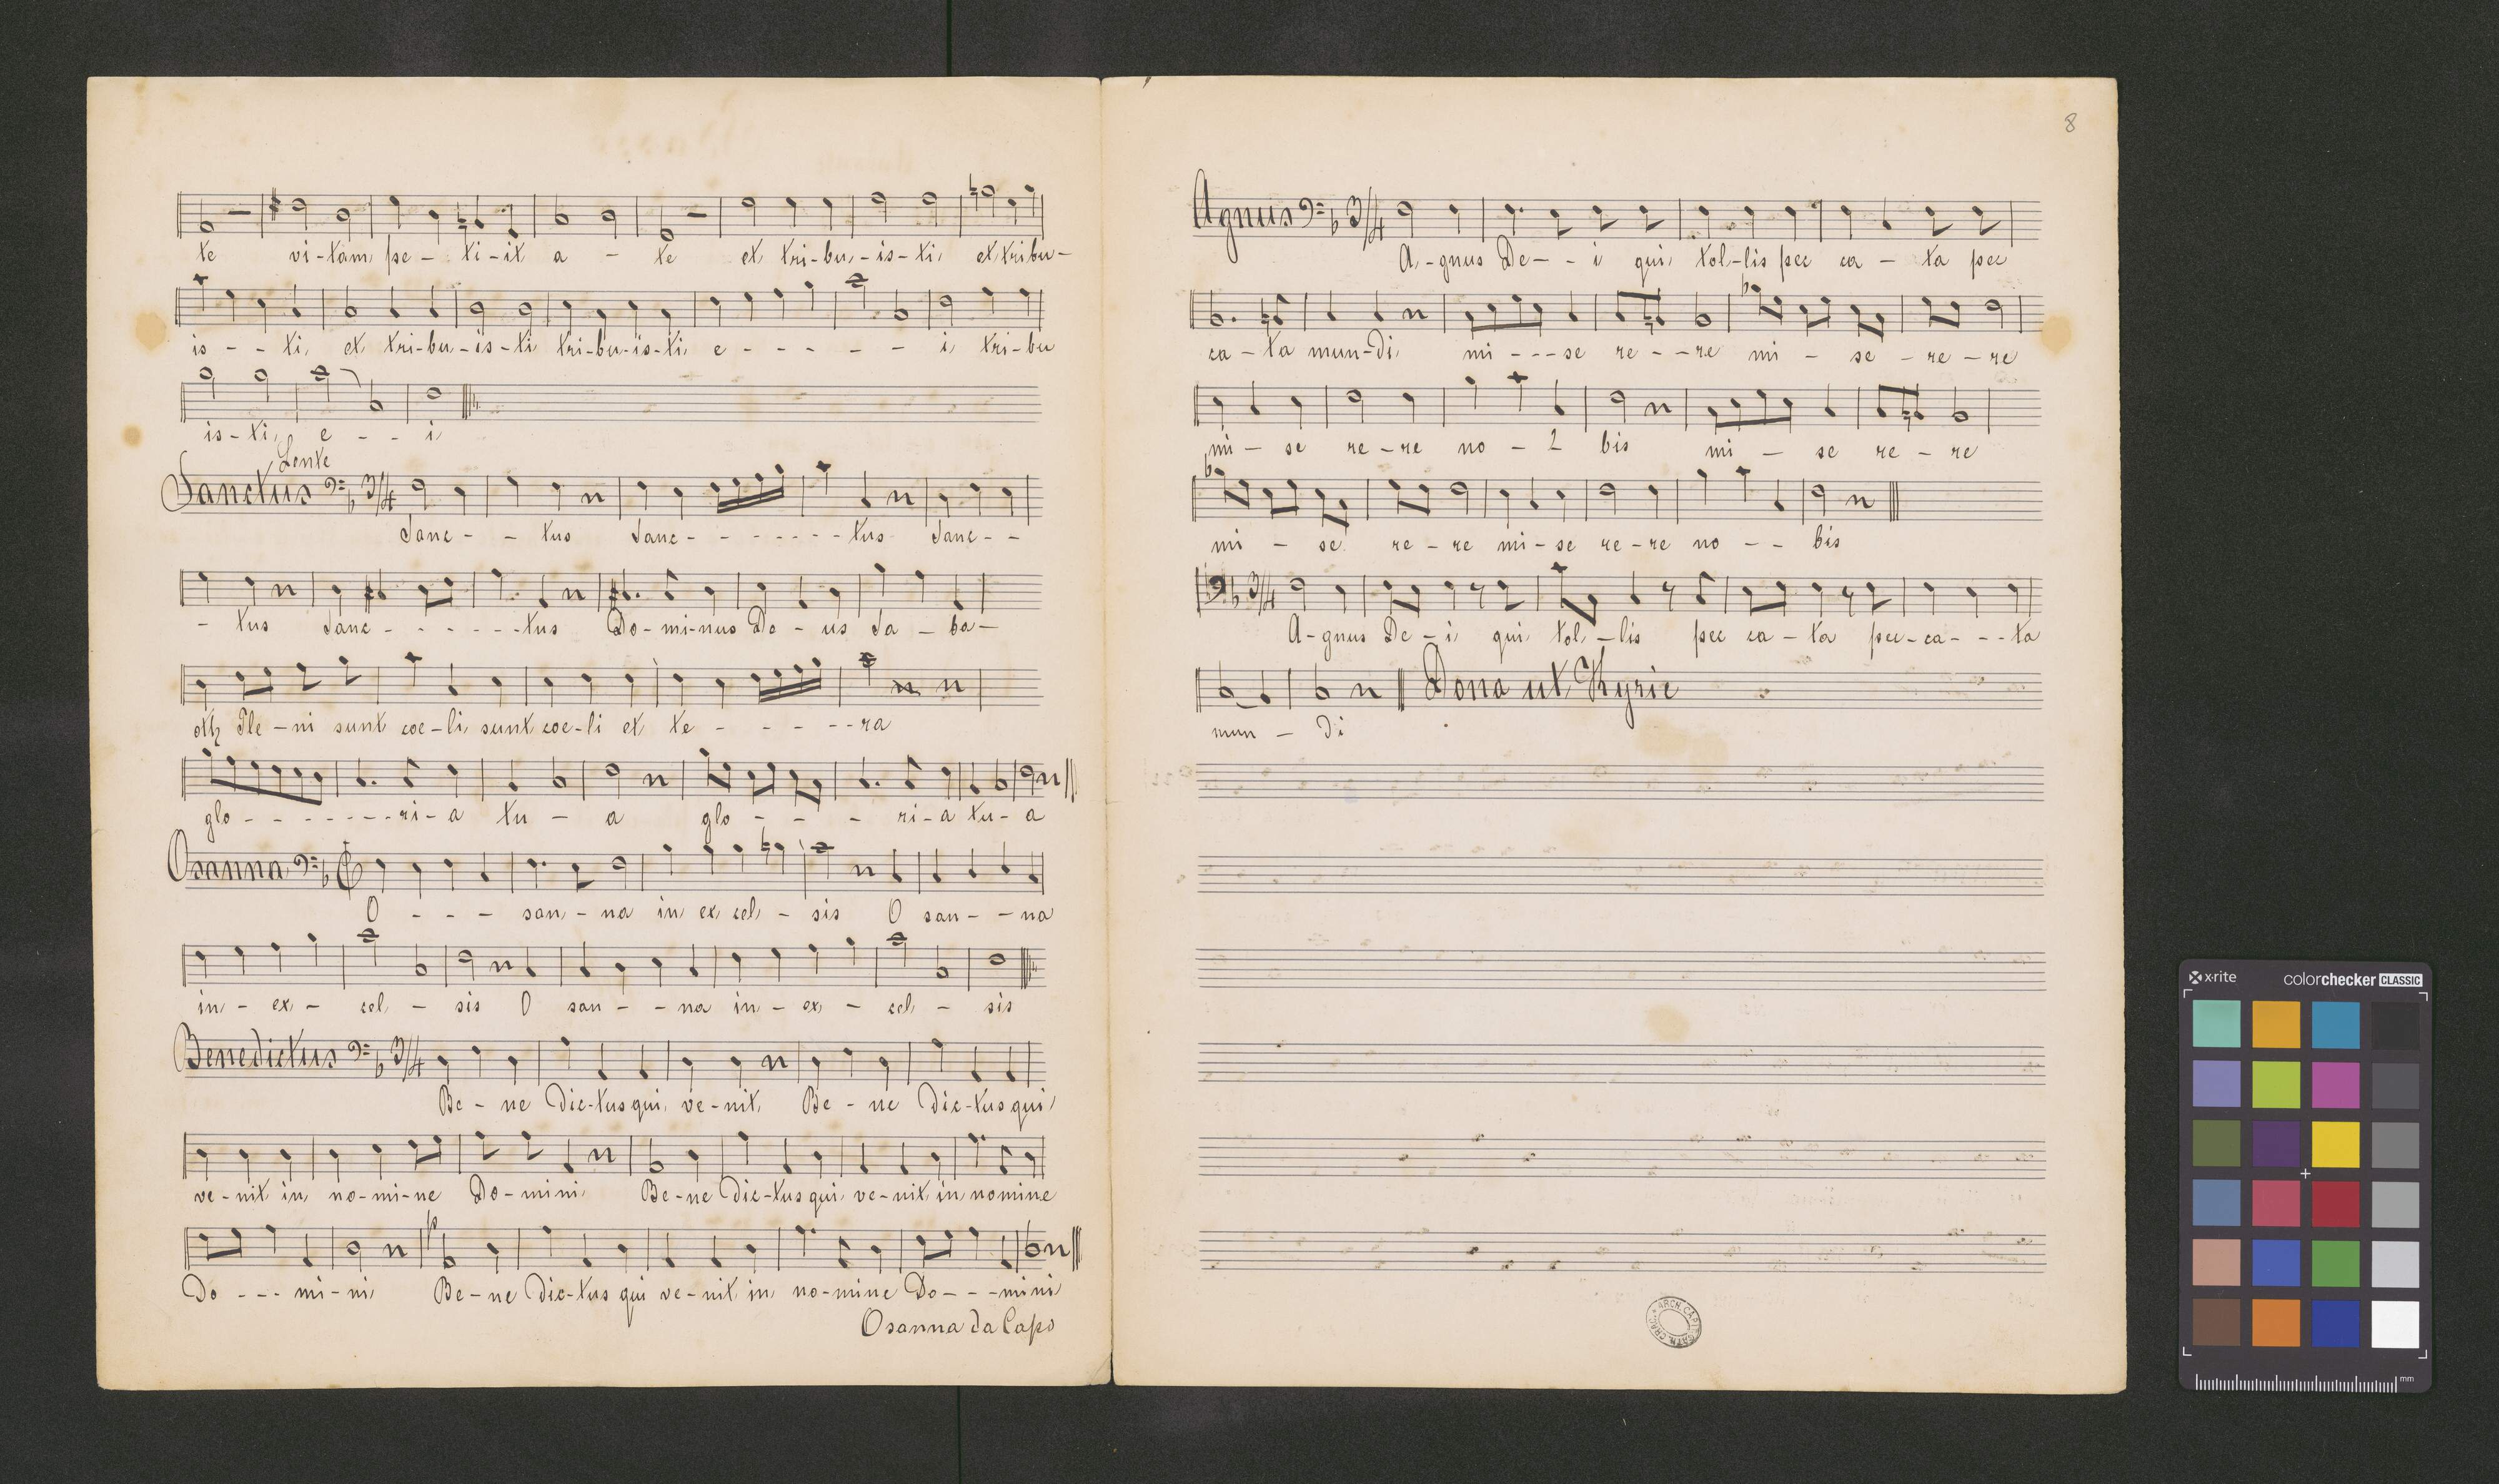 te vi-tam pe- ti-it a - te et tri-bu-is-ti et tribu-
is - - ti et tri-bu-is-ti tri-bu-is-ti e - - - - - i tri-bu
is-ti e - - i
Lente
Sanctus 3/4
Sanc - - tus Sanc - - - - - - tus Sanc - -
- tus Sanc - - - - - tus Do-mi-nus De-us Sa-ba-
oth Ple-ni sunt coe-li sunt coe-li et te - - - - - ra
glo - - - - - - - ri-a tu - a glo - - - ri-a tu-a
Osanna
O - - - san-na in ex cel-sis O san - - na
in-ex-cel-sis O san - - na in-ex-cel-sis
Benedictus 3/4
Be-ne Dic-tus qui ve-nit Be-ne Dic-tus qui
ve-nit in no-mi-ne Do-mini Be-ne Dic-tus qui ve-nit in nomine
p
Do - - - mi-ni Be-ne Dic-tus qui ve-nit in no-mine Do - - -mini
Osanna da Capo
8
Agnus 3/4
A-gnus De - - i qui tol-lis pec ca - ta pec
ca-ta mun-di mi - - -se re - -re mi - se -re-re
mi-se re-re no - 2 bis mi - se re-re
mi - se re-re mi-se re-re no - - bis
3/4
A-gnus De-i qui tol-lis pec ca-ta pec-ca - - -ta
Dona ut Kyrie
mun - di
ARCH. CAPIT. CATH. CRAC.
x-rite colorchecker CLASSIC
mm